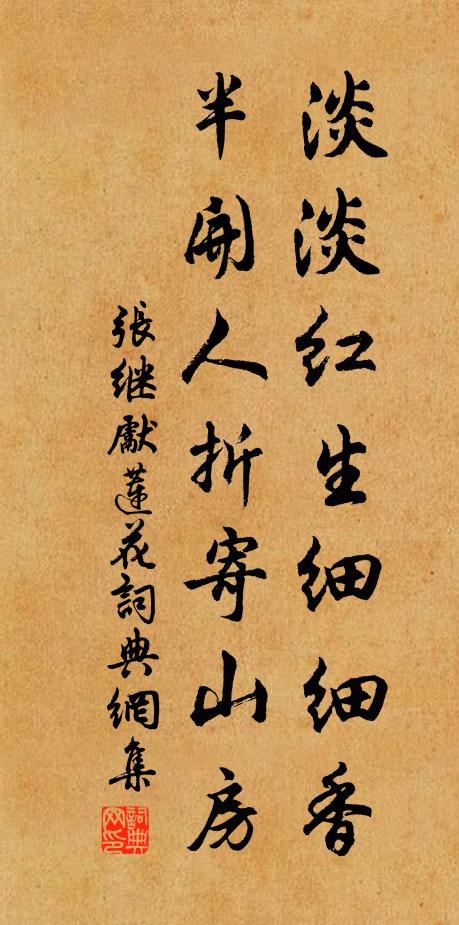 淡淡红生细细香
半開人折寄山房
張继獻蓮花詞典網集
詞典
网印